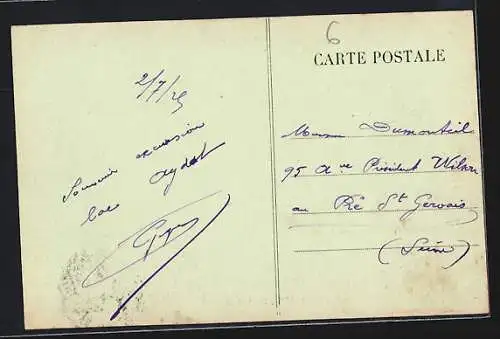 6
CARTE POSTALE
2/7/25
Souvenir excursion
lac Aydat
Dumonteil
95 Ave Président Wilson
au Pré St Gervais
(Seine)